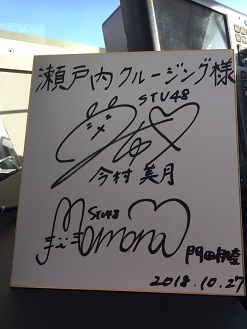 瀬戸内クルージング様
STU48
今村 美月
STU48
Momona
門田桃奈
2018.10.27